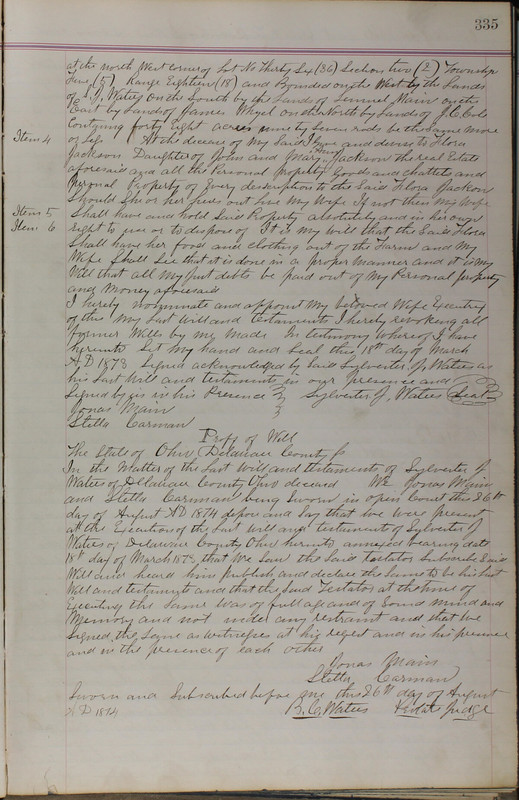 335
at the north West corner of Lot No Thirty Six (36) Section two (2) Township
five (5) Range Eighteen (18) and Bounded on the West by the Lands
of S. J. Waties on the South by the Lands of Lemuel Main on the
East by Lands of James on the North by Lands of J. C. Cole
Contying forty Eight acres nine ty Seven rods be the same more
Item 4 or Less At the decease of My Said I give and devise to Flora
Jackson Daughter of John and Mary Ann Jackson the real Estate
aforesaid and all the Personal property Goods and chattels and
Personal Property of Every description to the Said Flora Jackson
Should She or her heirs out live My Wife If not then My Wife
Item 5 Shall have and hold Said Property absolutely and in his own
Item 6 right to use or to dispose of It is My will that the Said Flora
Shall have her food and clothing out of the Farm and My
Wife Shall See that it is done in a proper manner and it is My
Will that all My Just debts be paid out of My Personal property
and Money aforesaid
I hereby nominate and appoint My beloved Wife Executrix
of this My Last Will and testament I hereby revoking all
former Wills by me Made In testimony Whereof I have
hereunto Set My hand and Seal this 18th day of March
A D 1873 Signed acknowledged by Said Sylvester J Waties as
his Last Will and testament in our presence and
Signed by us in his Presence Sylvester J. Waties Seal
Jonas Main
Stella Carman
Proff of Will
The State of Ohio Delaware County ss
In the Matter of the Last Will and testament of Sylvester J
Waties of Delaware County Ohio deceased WE Jonas Main
and Stella Carman being Sworn in open Court this 26th
day of August A D 1874 depose and Say that we were present
at the Execution of the Last Will and testament of Sylvester J
Waties of Delaware County Ohio hereunto annexed bearing date
18th day of March 1873 that We Saw the Said testator Subscribe Said
Will and heard him publish and declare the Same to be his Last
Will and testament and that the Said Testator at the time of
Executing the Same Was of full age and of Sound mind and
Memory and not under any restraint and that We
Signed the Same as witnesses at his reqest and in his presence
and in the presence of each other
Jonas Main
Stella Carman
Sworn and Subscribed before me this 26th day of August
A D 1874 B. C. Waties Probate Judge